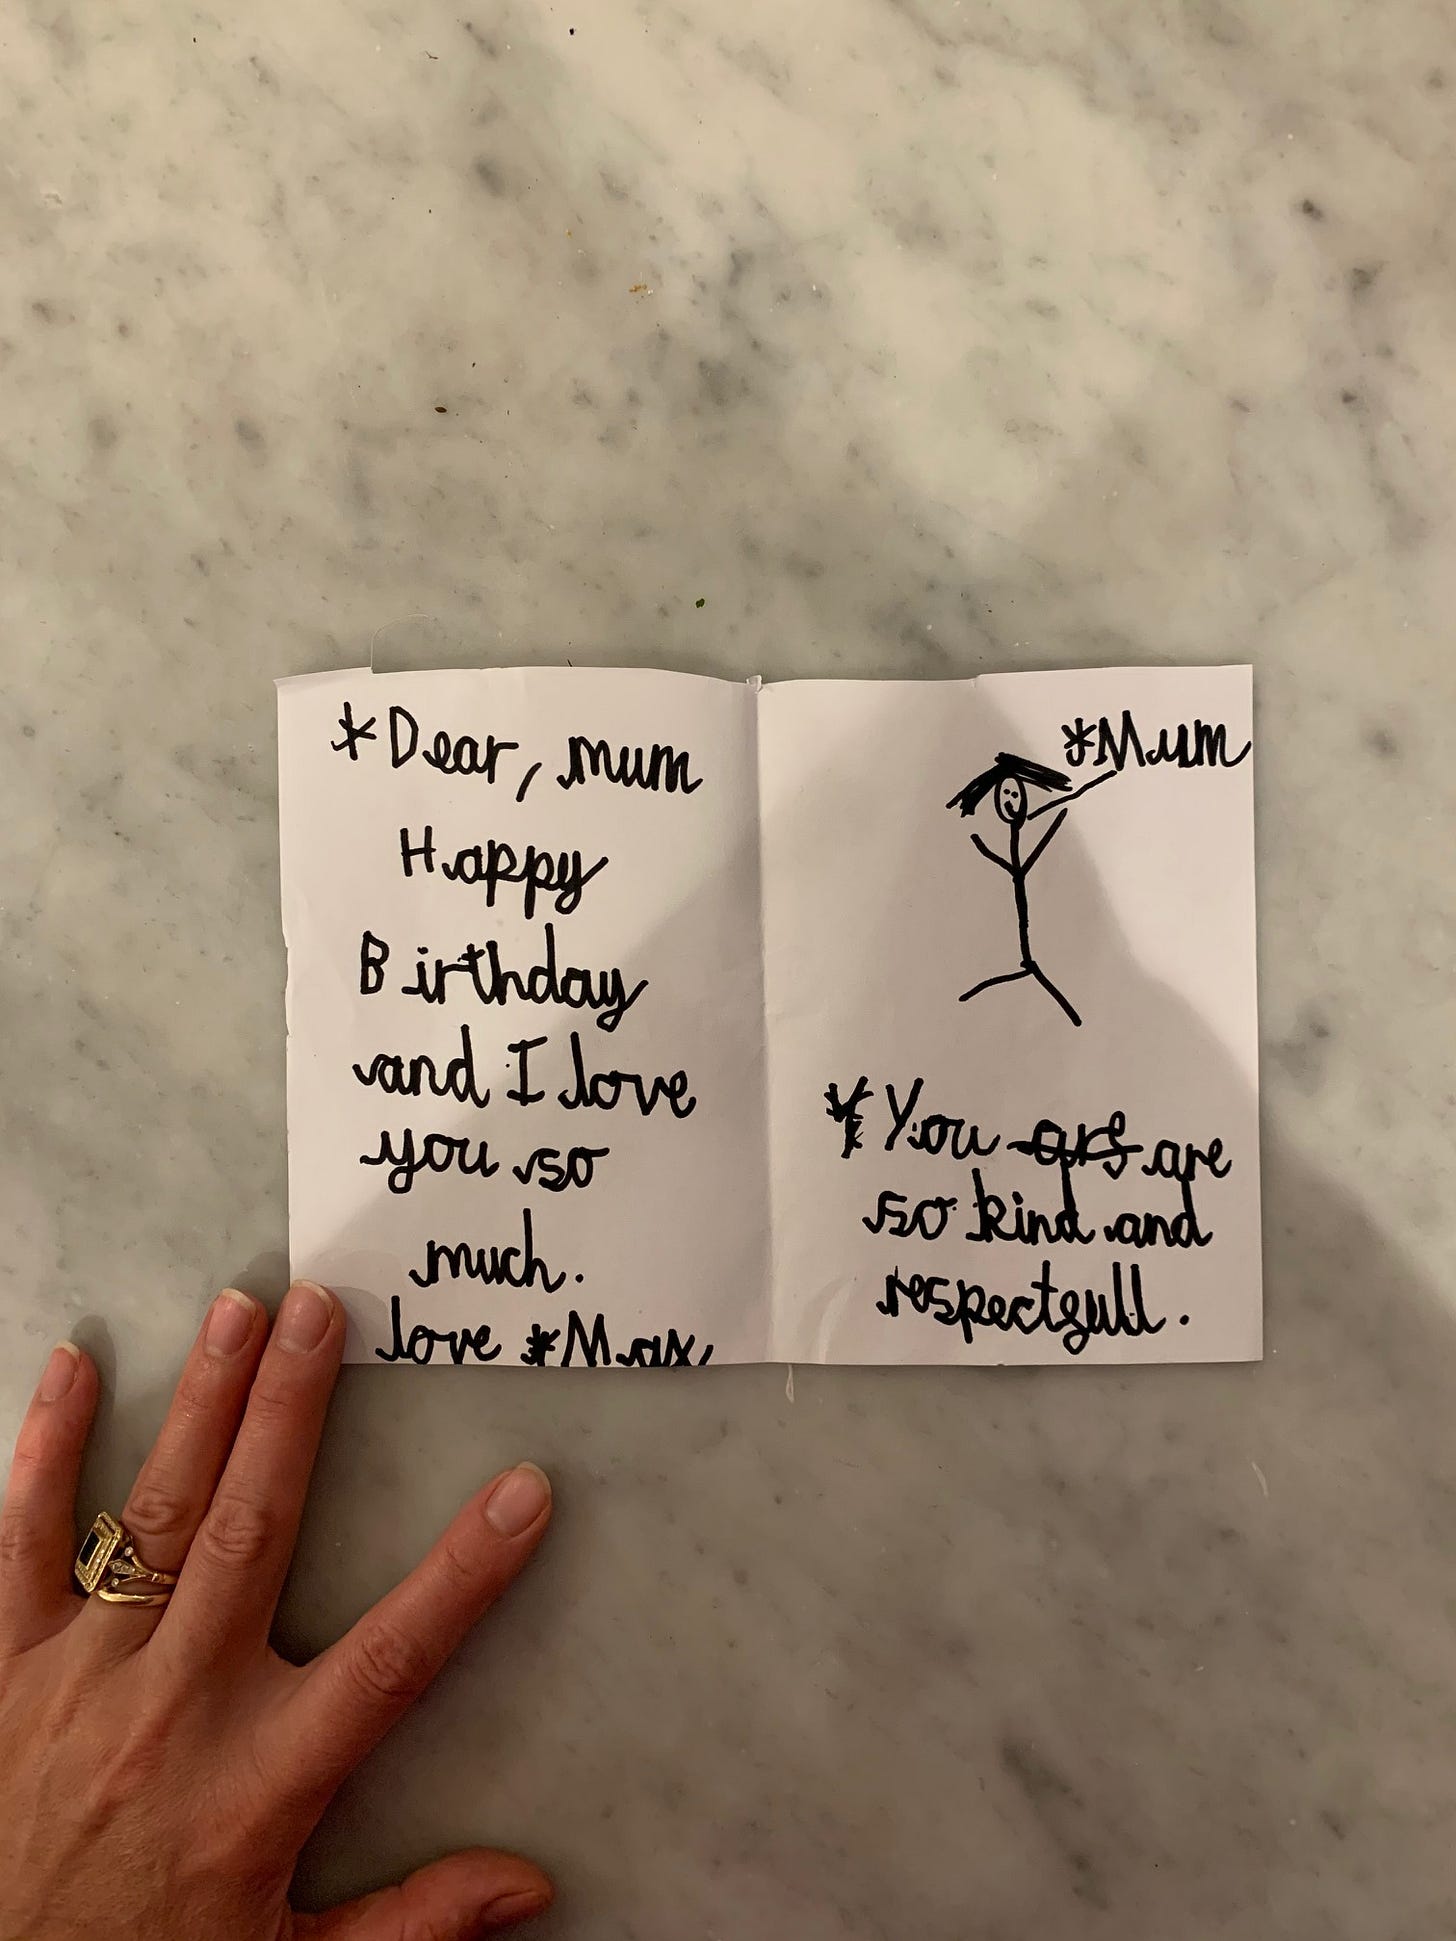 *Dear, mum
Happy
Birthday
and I love
you so
much.
love *Max
*Mum
*You ars are
so kind and
respectfull.